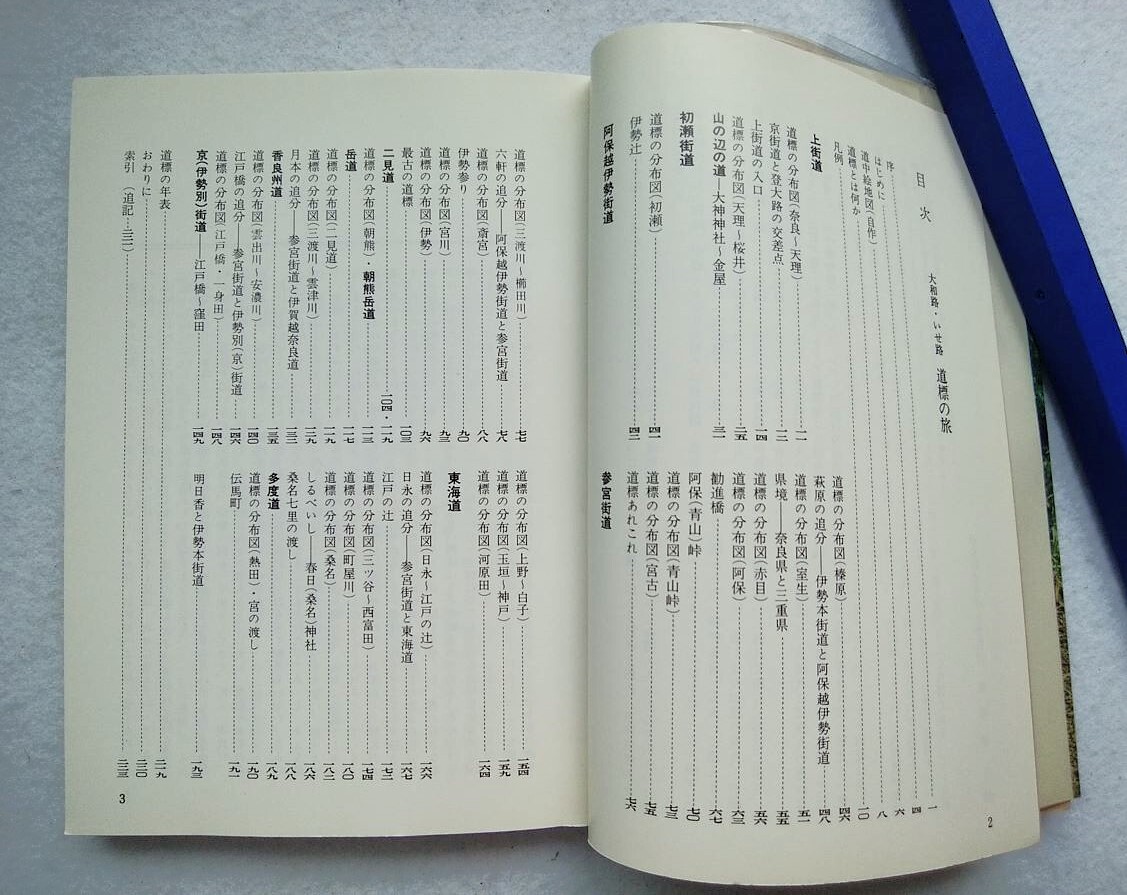 目次
大和路・いせ路 道標の旅
序 一
はじめに 四
道中絵地図(自作) 六
道標とは何か 八
凡例 一〇
上街道
道標の分布図(奈良〜天理) 一一
京街道と登大路の交差点 一二
上街道の入口 一四
道標の分布図(天理〜桜井) 二五
山の辺の道―大神神社〜金屋 三一
初瀬街道
道標の分布図(初瀬) 四一
伊勢辻 四二
阿保越伊勢街道
道標の分布図(榛原) 四六
萩原の追分――伊勢本街道と阿保越伊勢街道 四八
道標の分布図(室生) 五一
県境――奈良県と三重県 五五
道標の分布図(赤目) 五六
道標の分布図(阿保) 六三
勧進橋 六七
阿保(青山)峠 七〇
道標の分布図(青山峠) 七三
道標の分布図(宮古) 七五
道標あれこれ 七六
参宮街道
2
道標の分布図(三渡川〜櫛田川) 七七
六軒の追分――阿保越伊勢街道と参宮街道 七八
道標の分布図(斎宮) 八八
伊勢参り 九〇
道標の分布図(宮川) 九二
道標の分布図(伊勢) 九六
最古の道標 一〇三
二見道 一〇四・一一九
道標の分布図(朝熊)・朝熊岳道 一一三
岳道 一一七
道標の分布図(二見道) 一一九
道標の分布図(三渡川〜雲津川) 一二九
月本の追分――参宮街道と伊賀越奈良道 一三二
香良州道 一三五
道標の分布図(雲出川〜安濃川) 一四〇
江戸橋の追分――参宮街道と伊勢別(京)街道 一四六
道標の分布図(江戸橋・一身田) 一四八
京(伊勢別)街道――江戸橋〜窪田 一四九
道標の分布図(上野〜白子) 一五四
道標の分布図(玉垣〜神戸) 一五九
道標の分布図(河原田) 一六四
東海道
道標の分布図(日永〜江戸の辻) 一六六
日永の追分――参宮街道と東海道 一六七
江戸の辻 一七二
道標の分布図(三ツ谷〜西富田) 一七四
道標の分布図(町屋川) 一八〇
道標の分布図(桑名) 一八二
しるべいし――春日(桑名)神社 一八六
桑名七里の渡し 一八八
多度道 一八九
道標の分布図(熱田)・宮の渡し 一九〇
伝馬町 一九一
明日香と伊勢本街道 一九三
道標の年表 二一九
おわりに 二三〇
索引 (追記…二三一) 二三三
3